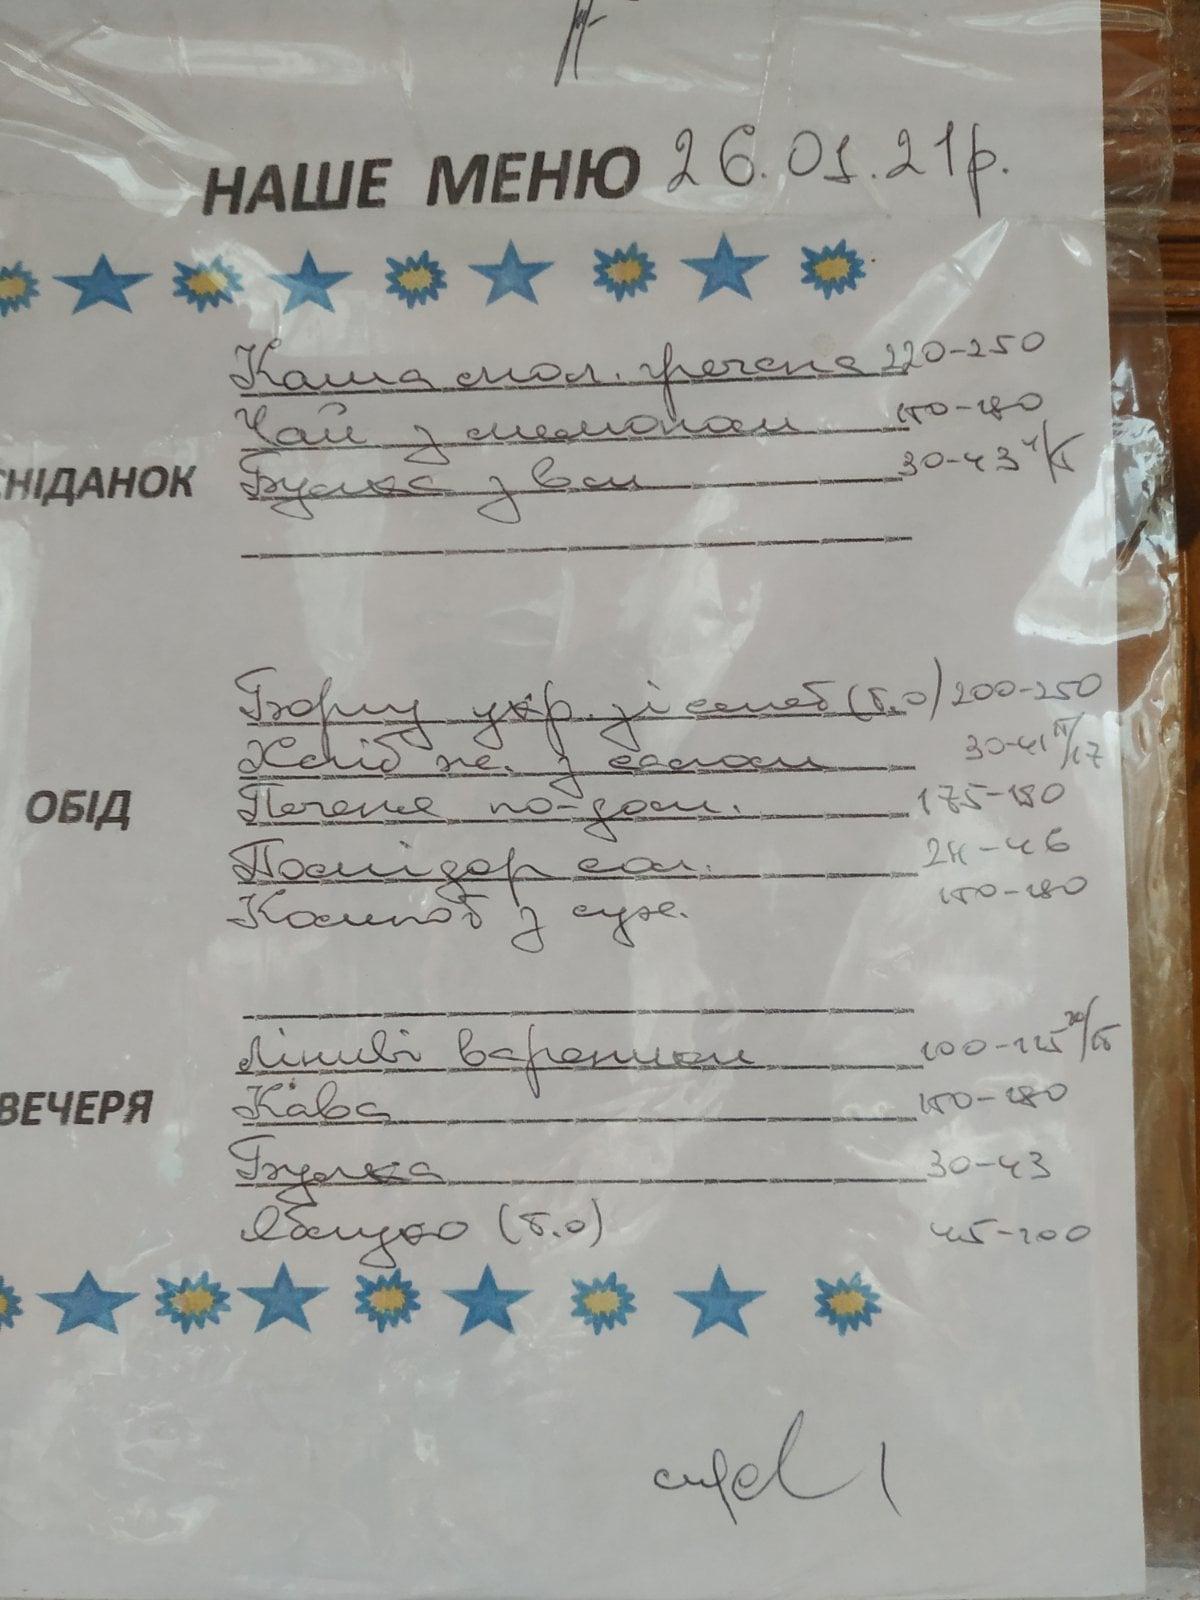 НАШЕ МЕНЮ 26.01.21р.
Каша мол. гречана 220-250
Чай з лимоном 150-180
СНІДАНОК Булка з вм 30-43 4/5
Борщ укр. зі смет (б.о) 200-250
Хліб ж. з салом 30-41 15/17
ОБІД Печеня по-дом. 175-180
Помідор сол. 24-46
Компот з сух. 150-180
Ліниві вареники 100-115 10/15
ВЕЧЕРЯ Кава 150-180
Булка 30-43
Яблуко (б.о) 45-100